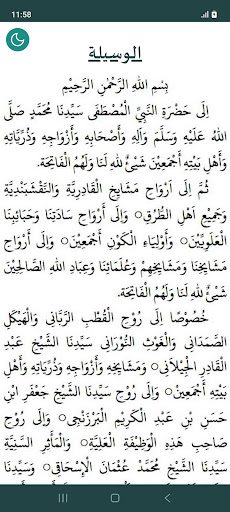 11:58
الوسيلة
بِسْمِ اللهِ الرَّحْمٰنِ الرَّحِيْمِ
إِلَى حَضْرَةِ النَّبِيِّ الْمُصْطَفَى سَيِّدِنَا مُحَمَّدٍ صَلَّى
اللهُ عَلَيْهِ وَسَلَّمَ وَآلِهِ وَأَصْحَابِهِ وَأَزْوَاجِهِ وَذُرِّيَّاتِهِ
وَأَهْلِ بَيْتِهِ أَجْمَعِيْنَ شَيْئٌ لِلهِ لَنَا وَلَهُمُ الْفَاتِحَة.
ثُمَّ إِلَى أَرْوَاحِ مَشَايِخِ الْقَادِرِيَّةِ وَالنَّقْشَبَنْدِيَّةِ
وَجَمِيْعِ أَهْلِ الطُّرُقِ○ وَإِلَى أَرْوَاحِ سَادَتِنَا وَحَبَائِبِنَا
الْعَلَوِيِّيْنَ○ وَأَوْلِيَاءِ الْكَوْنِ أَجْمَعِيْنَ○ وَإِلَى أَرْوَاحِ
مَشَايِخِنَا وَمَشَايِخِهِمْ وَعُلَمَائِنَا وَعِبَادِ اللهِ الصَّالِحِيْنَ
شَيْئٌ لِلهِ لَنَا وَلَهُمُ الْفَاتِحَة.
خُصُوْصًا إِلَى رُوْحِ الْقُطْبِ الرَّبَّانِي وَالْهَيْكَلِ
الصَّمَدَانِي وَالْغَوْثِ النُّوْرَانِي سَيِّدِنَا الشَّيْخِ عَبْدِ
الْقَادِرِ الْجِيْلَانِي○ وَمَشَايِخِهِ وَأَزْوَاجِهِ وَذُرِّيَّاتِهِ وَأَهْلِ
بَيْتِهِ أَجْمَعِيْنَ○ وَإِلَى رُوْحِ سَيِّدِنَا الشَّيْخِ جَعْفَرِ ابْنِ
حَسَنِ بْنِ عَبْدِ الْكَرِيْمِ الْبَرْزَنْجِي○ وَإِلَى رُوْحِ
صَاحِبِ هَذِهِ الْوَظِيْفَةِ الْعَلِيَّةِ○ وَالْمَأْثَرِ السَّنِيَّةِ
سَيِّدِنَا الشَّيْخِ مُحَمَّدْ عُثْمَانَ الْإِسْحَاقِي○ وَسَيِّدِنَا